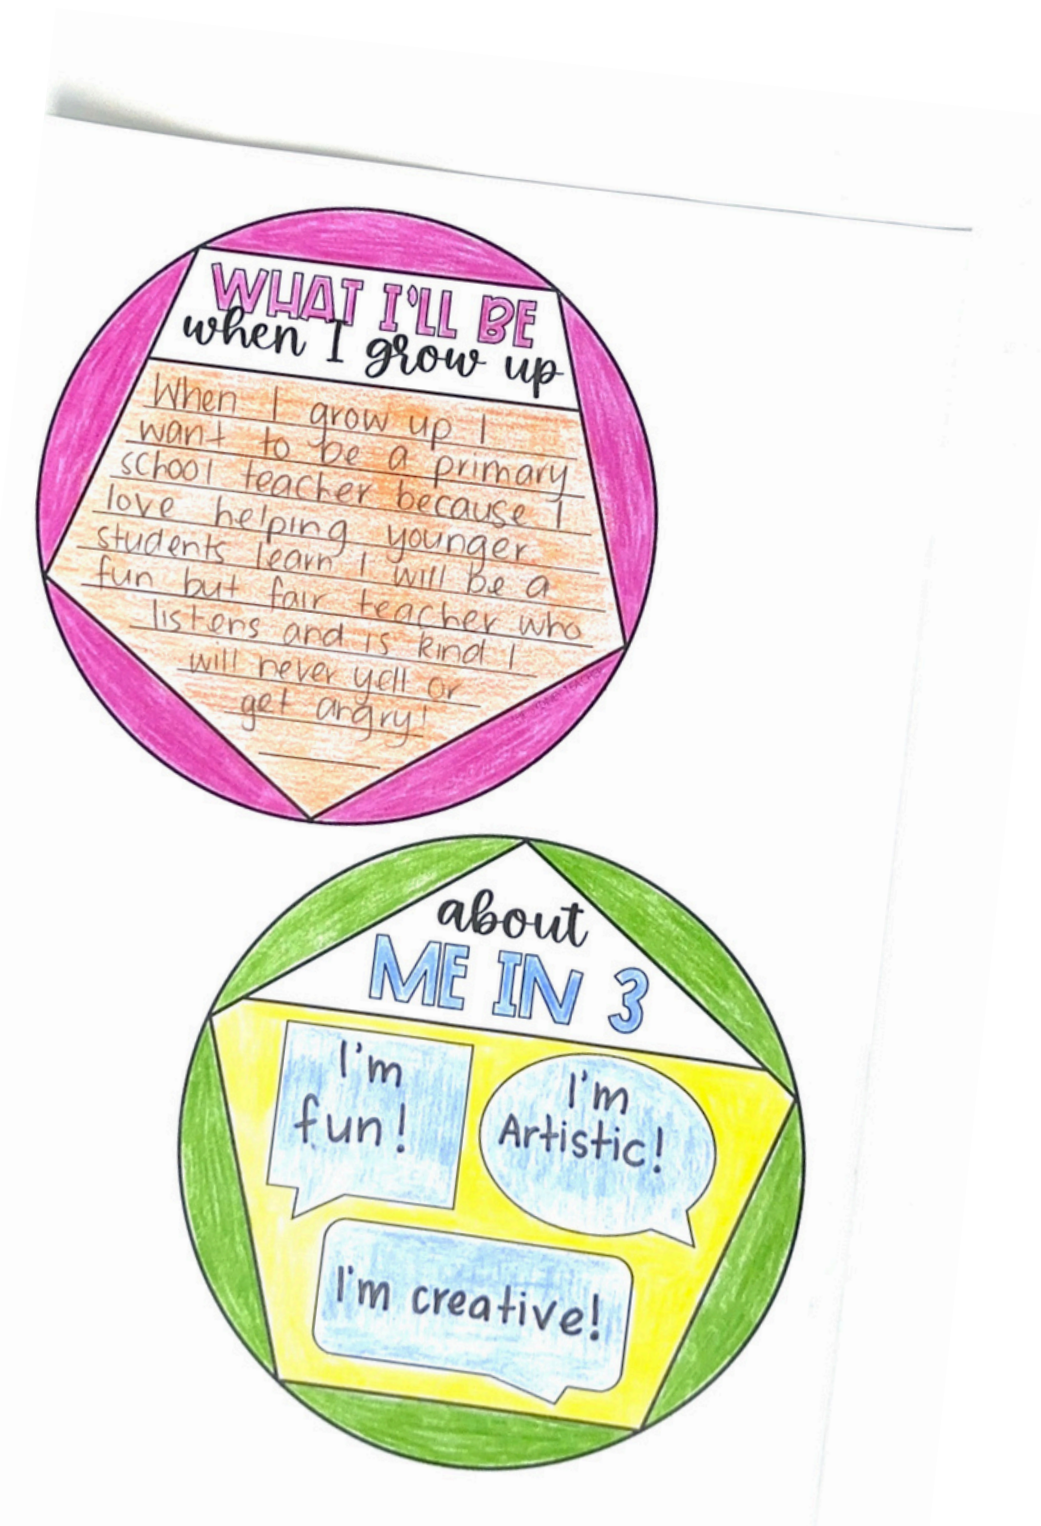 WHAT I'LL BE
when I grow up
When I grow up I
want to be a primary
school teacher because I
love helping younger
students learn I will be a
fun but fair teacher who
listens and is kind I
will never yell or
get angry!
about
ME IN 3
I'm
fun!
I'm
Artistic!
I'm creative!